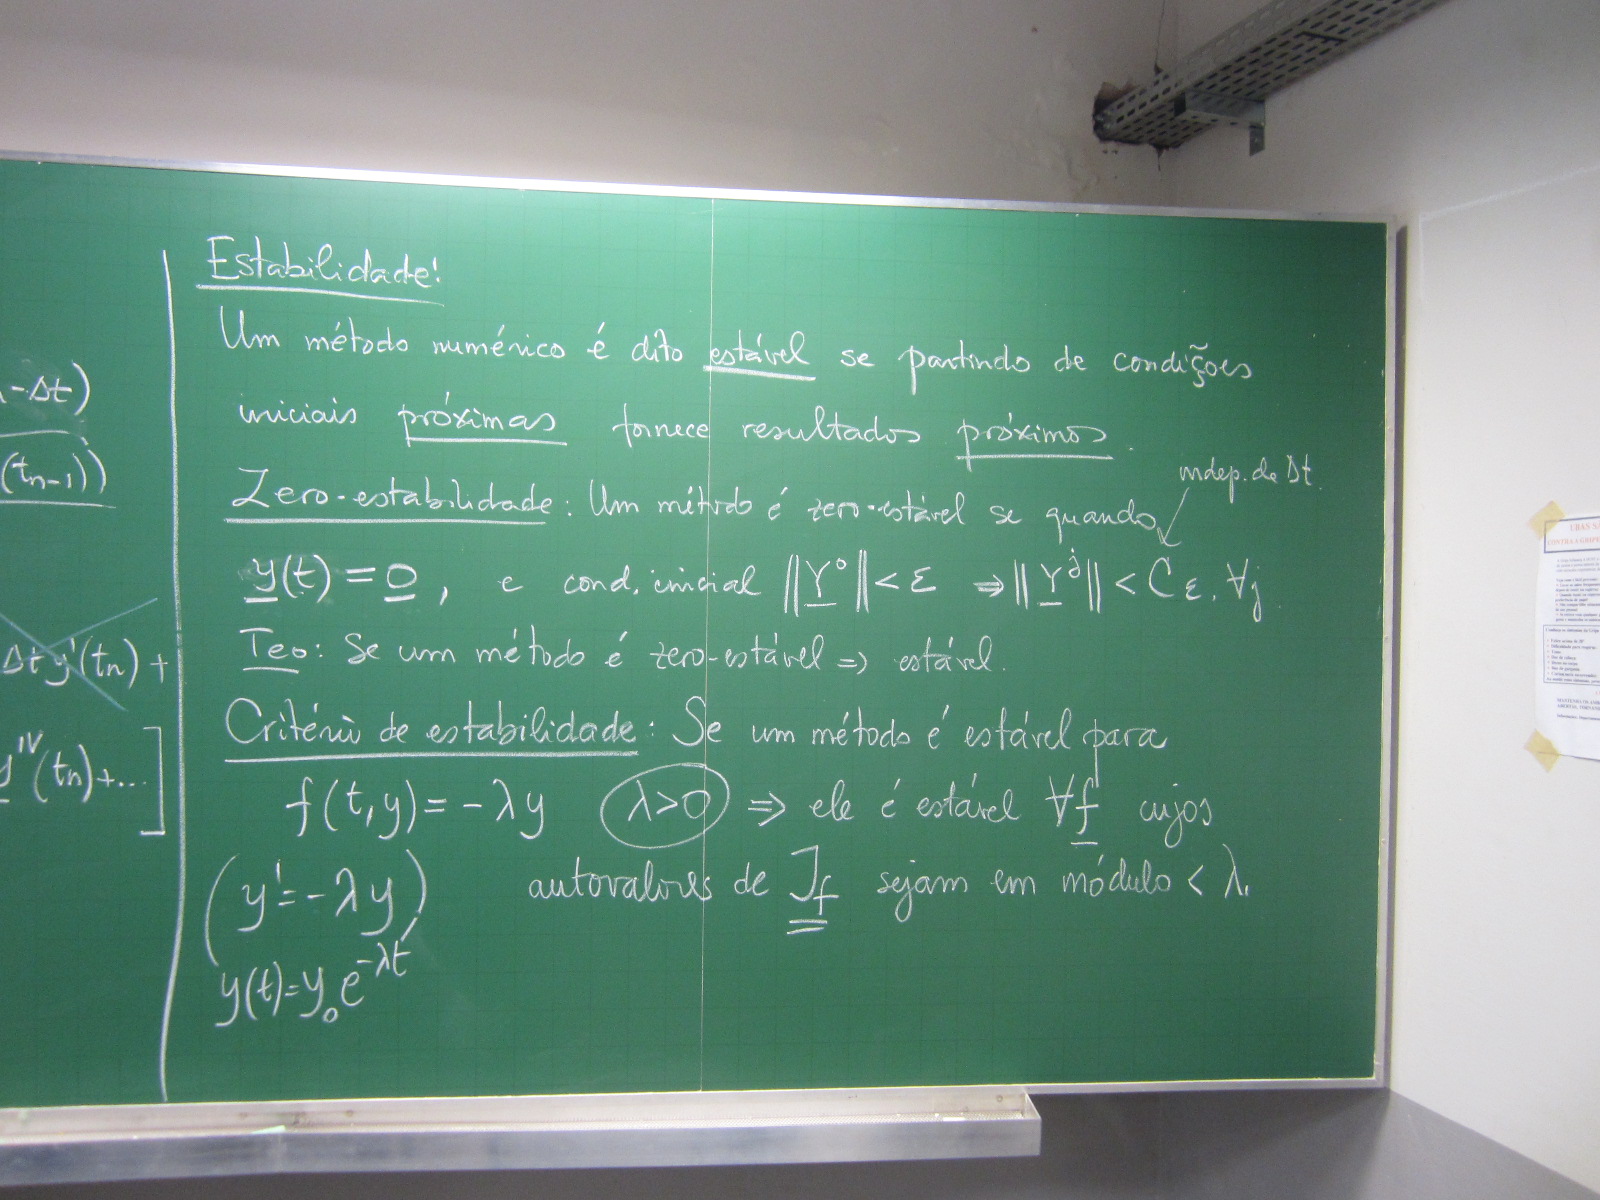 -Δt)
(tn-1))
Δt y'(tn) +
y^IV(tn)+...]
Estabilidade:
Um método numérico é dito estável se partindo de condições
iniciais próximas fornece resultados próximos.
indep. de Δt.
Zero-estabilidade: Um método é zero-estável se quando
y(t) = 0, e cond. inicial ||Y^0|| < ε ⇒ ||Y^j|| < Cε, ∀j
Teo: Se um método é zero-estável ⇒ estável.
Critério de estabilidade: Se um método é estável para
f(t,y) = -λy λ>0 ⇒ ele é estável ∀f cujos
(y'=-λy) autovalores de J_f sejam em módulo < λ.
y(t)=y₀e^-λt